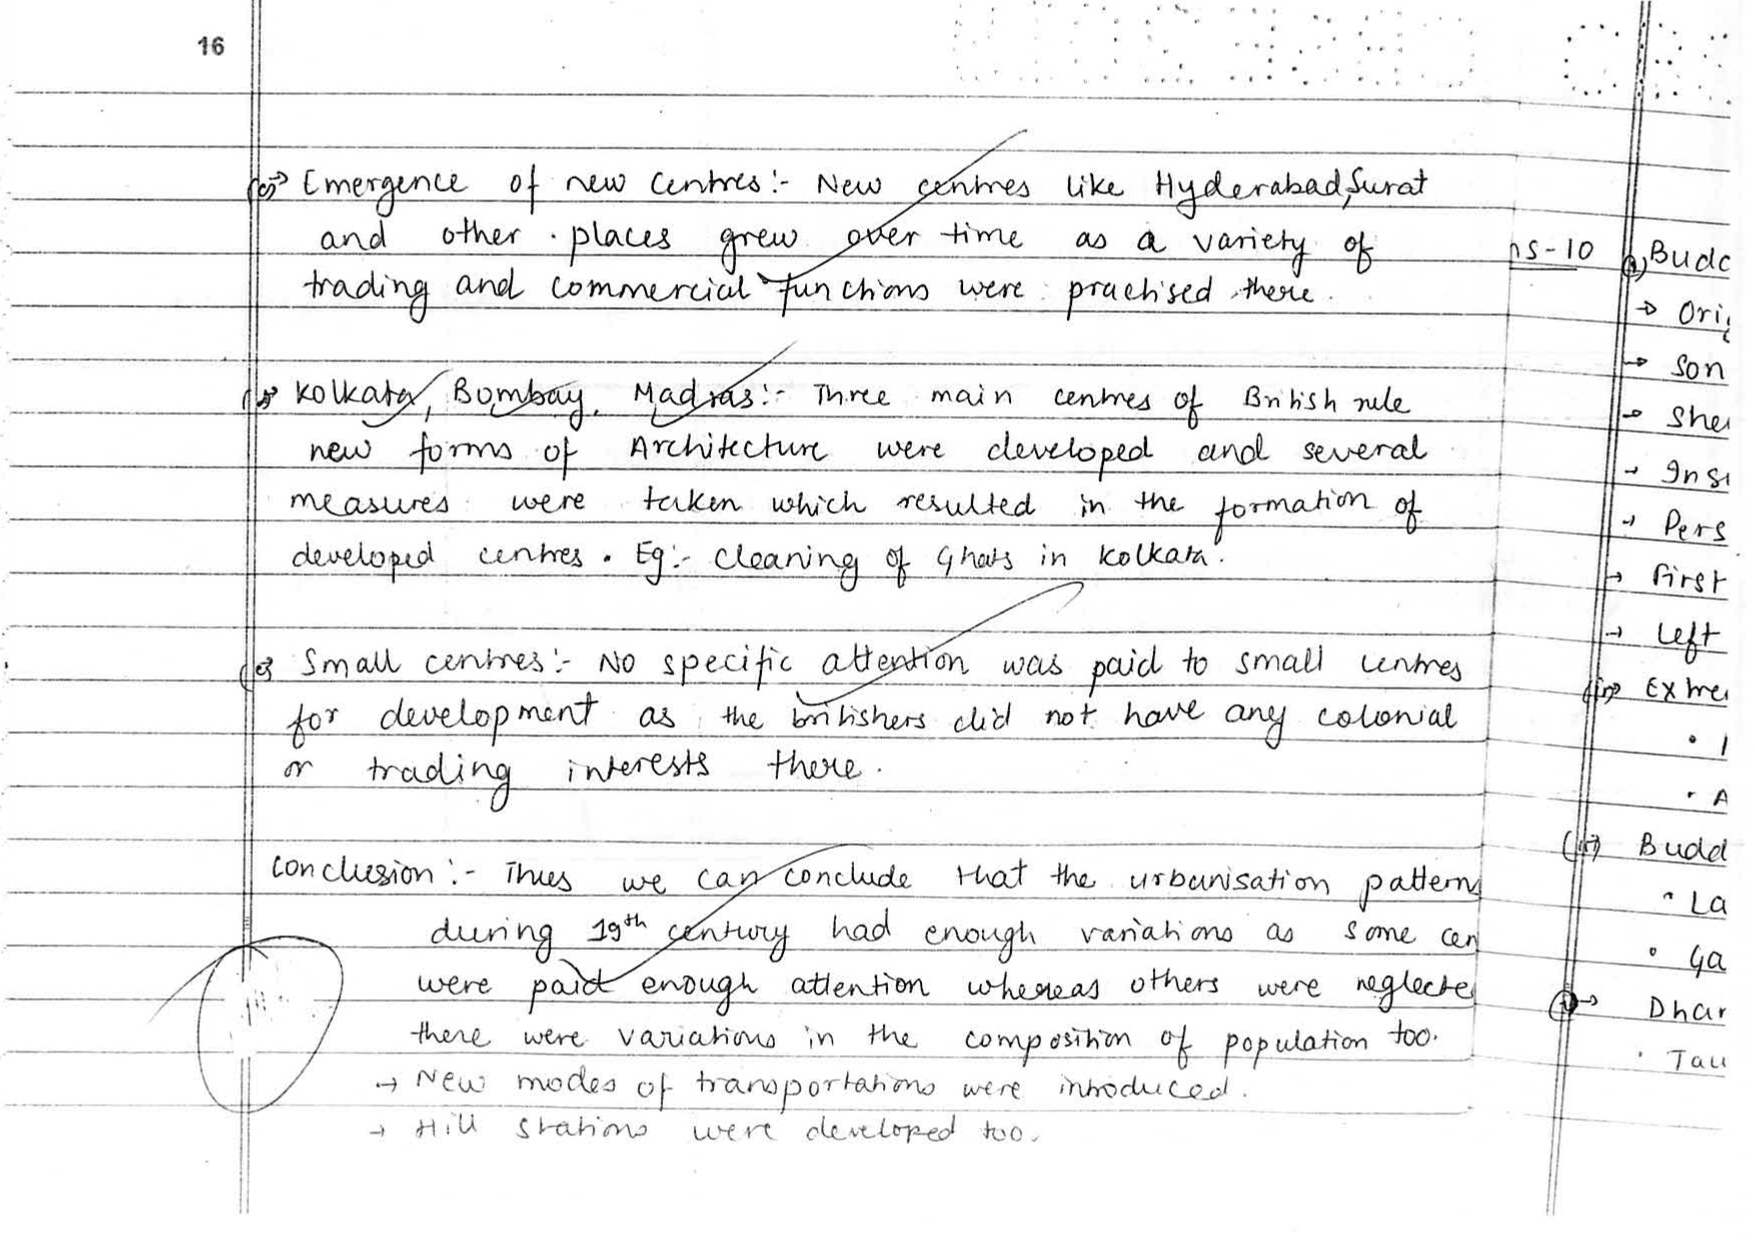 16
Emergence of new centres:- New centres like Hyderabad, Surat
and other places grew over time as a variety of
trading and commercial functions were practised there.
Kolkata, Bombay, Madras:- Three main centres of British rule
new forms of Architecture were developed and several
measures were taken which resulted in the formation of
developed centres. Eg:- Cleaning of Ghats in Kolkata.
Small centres:- No specific attention was paid to small centres
for development as the britishers did not have any colonial
or trading interests there.
Conclusion:- Thus we can conclude that the urbanisation pattern
during 19th century had enough variations as some cen
were paid enough attention whereas others were neglecte
there were variations in the composition of population too.
→ New modes of transportations were introduced.
→ Hill stations were developed too.
ns-10
Budd
→ Orig
→ Son
→ She
→ Ins
→ Pers
→ First
→ Left
Extre
• A
Budd
• La
• Ga
Dhar
• Tau